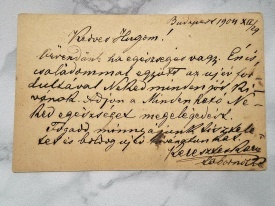 Budapest 1904 XII/29
Kedves Hugom!
Örvendünk ha egészséges vagy. Én is
családommal együtt az uj év for
dultával Neked minden jót Ki
vánok. Adjon a Mindenható Ne
ked egészséget megelégedést.
Fogadd mindnyájunk
és boldog uj
Keresztes